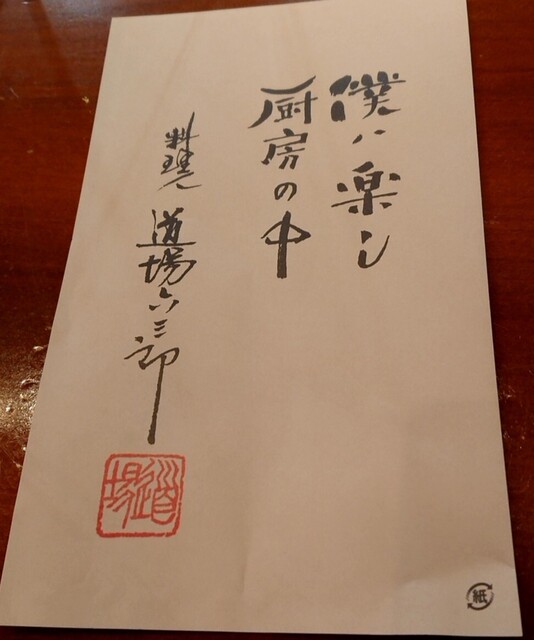 僕ハ楽し
厨房の中
料理人 道場六三郎
道場
紙